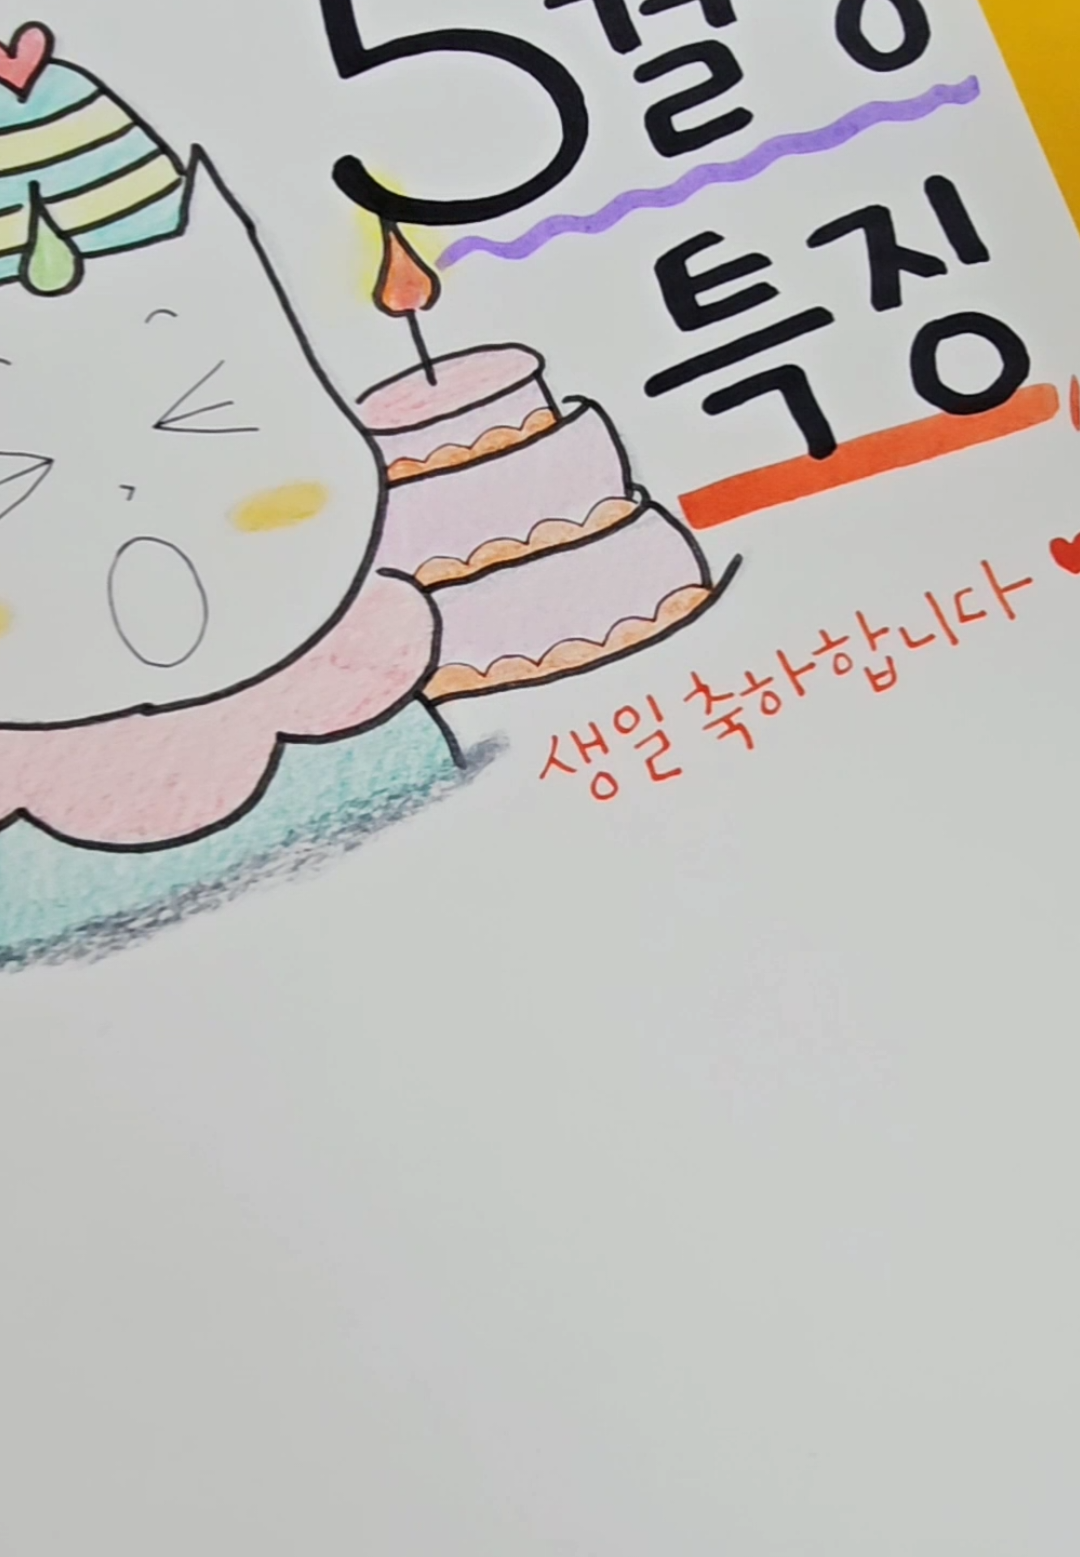 5월
특징
생일 축하합니다